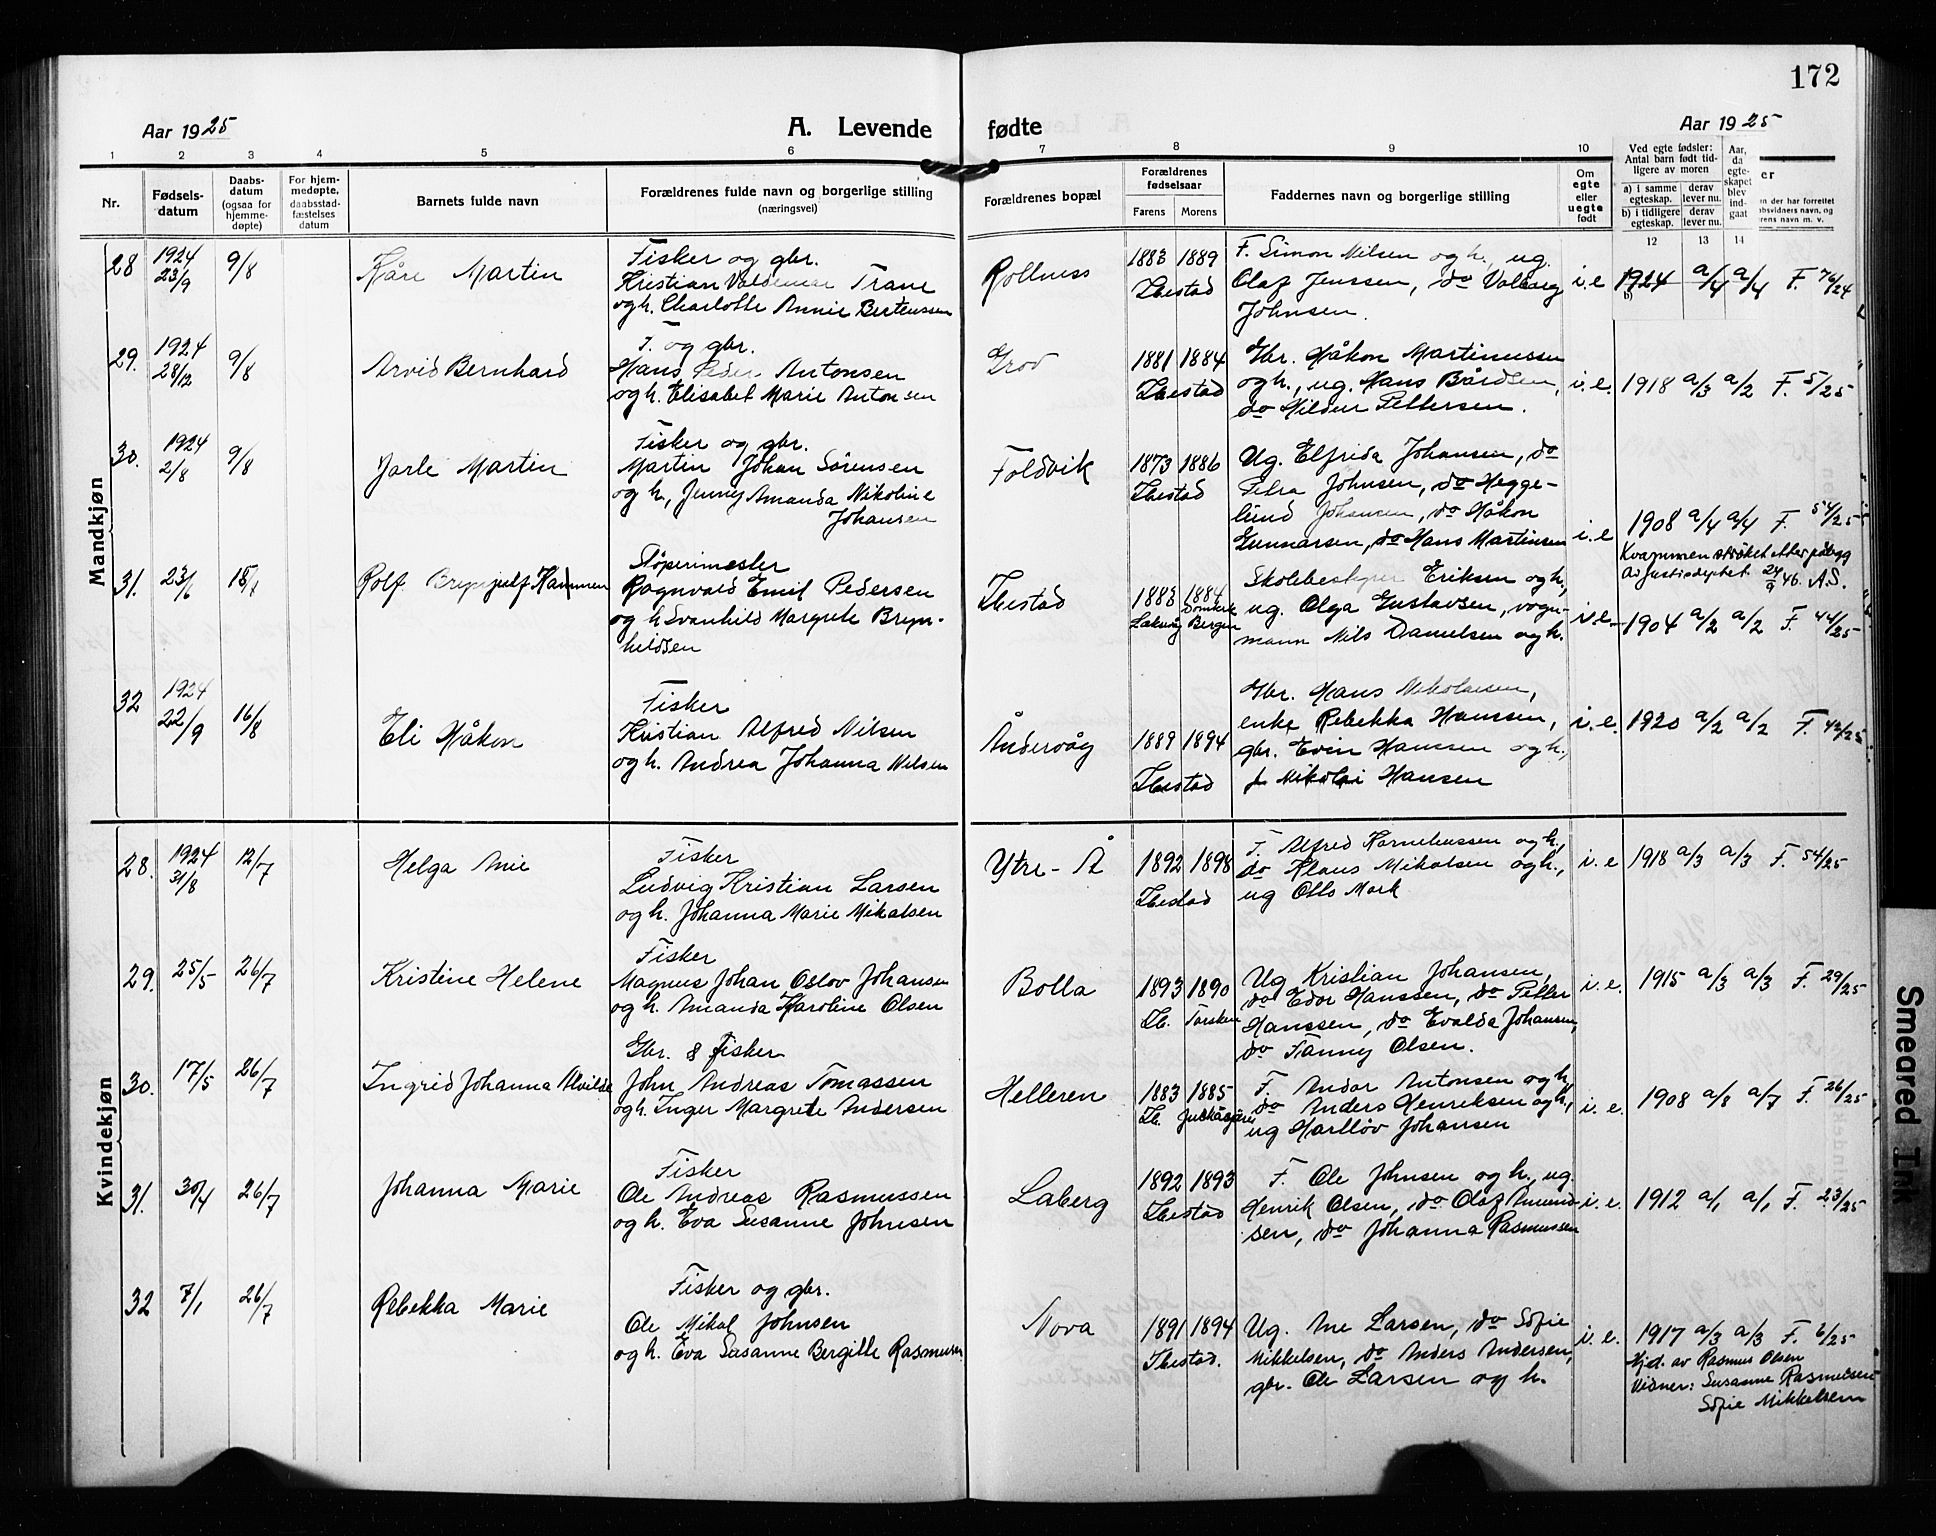 172
Aar 1925
A. Levende
fødte
Aar 1925
1 2 3 4 5 6 7 8 9 10
Nr.
Fødsels-
datum
Daabs-
datum
(ogsaa for
hjemme-
døpte)
For hjem-
medøpte,
daabsstad-
fæstelses
datum
Barnets fulde navn
Forældrenes fulde navn og borgerlige stilling
(næringsvei)
Forældrenes bopæl
Forældrenes
fødselsaar
Farens Morens
Faddernes navn og borgerlige stilling
Om
egte
eller
uegte
født
Ved egte fødsler:
Antal barn født tid-
ligere av moren
a) i samme
egteskap.
derav
lever nu.
b) i tidligere
egteskap.
derav
lever nu.
Aar,
da
egte-
skapet
blev
ind-
gaat
12 13 14
en der har forrettet
Mandkjøn
28
1924
23/9
9/8
Kåre Martin
Fisker og gbr.
Kristian Valdemar Trane
og h. Charlotte Annie Bertenssen
Rollness
1883 1889
Ibestad
F. Simon Nilsen og h., ug.
Olaf Jenssen, do Valborg
Johnsen.
i.e
1924 a/4 a/4 F. 76/24
b)
29.
1924
28/12
9/8
Arvid Bernhard
F. og gbr.
Hans Peder Antonsen
og h. Elisabet Marie Antonsen
Grov
1881 1884
Ibestad
Gbr. Håkon Martinussen
og h., ug. Hans Bårdsen,
do Hildur Pettersen.
i.e.
1918 a/3 a/2 F. 5/25
30.
1924
2/8
9/8
Jarle Martin
Fisker og gbr.
Martin Johan Sørensen
og h, Jenny Amanda Nikoline
Johansen
Foldvik
1873 1886
Ibestad
Ug. Elfrida Johansen, do
Petra Johnsen, do Hegge-
lund Johansen, do Håkon
Gunnarsen, do Hans Martinsen
i.e
1908 a/4 a/4 F. 54/25
Kvammen strøket etter pålegg
av Justisdeptet 24/9 46. A.S.
31.
23/6
18/7
Rolf Brynjulf Kvammen
Støperimester
Ragnvald Emil Pedersen
og h Svanhild Margrete Bryn-
hildsen
Ibestad
1883 1884
Bergen
Skolebestyrer Eriksen og h,
ug. Olga Gustavsen, vogn-
mann Nils Danielsen og h.
i.e.
1904 a/2 a/2 F. 44/25
32
1924
22/9
16/8
Eli Håkon
Fisker
Kristian Alfred Nilsen
og h. Andrea Johanna Nilsen
Åndervåg
1889 1894
Ibestad
Gbr. Hans Nikolaisen,
enke Rebekka Hanssen,
gbr. Evin Hanssen og h.,
Nikolai Hansen
i.e.
1920 a/2 a/2 F. 42/25
Kvindekjøn
28.
1924
31/8
12/7
Helga Anie
Fisker
Ludvig Kristian Larsen
og h. Johanna Marie Mikalsen
Ytre-Å
1892 1898
Ibestad
F. Alfred Korneliussen og h.,
do Klaus Mikalsen og h.,
ug Otto Mark
i.e
1918 a/3 a/3 F. 54/25
29.
25/5
26/7
Kristine Helene
Fisker
Magnus Johan Oslov Johansen
og h. Amanda Karoline Olsen
Bolla
1893 1890
Ib. Torsken
Ug Kristian Johansen,
do Edor Hanssen, do Petter
Hanssen, do Evalda Johansen,
do Fanny Olsen.
i.e.
1915 a/3 a/3 F. 29/25
30.
17/5
26/7
Ingrid Johanna Alvilde
Gbr. & fisker
John Andreas Tomassen
og h. Inger Margrete Andersen
Helleren
1883 1885
Ib.
F. Andor Antonsen og h,
do Anders Henriksen og h,
ug Hartløv Johansen
i.e.
1908 a/8 a/7 F. 26/25
31.
30/4
26/7
Johanna Marie
Fisker
Ole Andreas Rasmussen
og h. Eva Susanne Johnsen
Laberg
1892 1893
Ibestad
F. Ole Johnsen og h., ug.
Henrik Olsen, do Olaf Amund-
sen, do Johanna Rasmussen
i.e.
1912 a/1 a/1 F. 23/25
32
7/1
26/7
Rebekka Marie
Fisker og gbr.
Ole Mikal Johnsen
og h. Eva Susanne Bergitte Rasmussen
Nova
1891 1894
Ibestad.
Ug. Ane Larsen, do Sofie
Mikkelsen, do Anders Andersen,
gbr. Ole Larsen og h.
i.e.
1917 a/3 a/3 F. 6/25
Hjd. av Rasmus Olsen
Vidner: Susanne Rasmussen
Sofie Mikkelsen
Smeared Ink